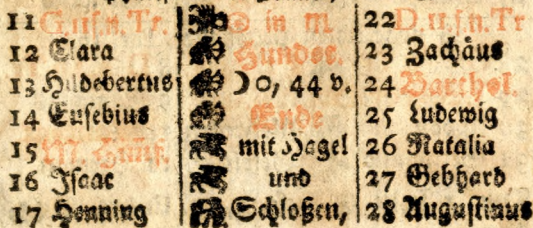 11 G. n. f. n. Tr. ☉ in m. 22 D. 11. f. n. Tr
12 Clara Hundst. 23 Zachäus
13 Hildebertus ☽ 0, 44 v. 24 Barthol.
14 Eusebius Ende 25 Ludewig
15 M. Him̃f. mit Hagel 26 Natalia
16 Isaac und 27 Gebhard
17 Henning Schloßen, 28 Augustinus